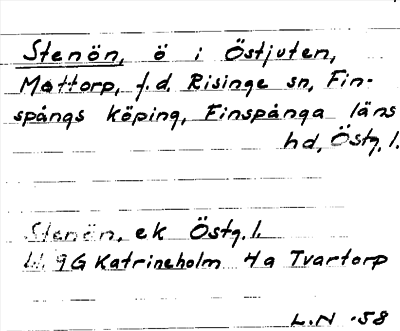 Stenön, ö i Östjuten,
Mattorp, f.d. Risinge sn, Fin-
spångs köping, Finspånga läns
hd, Östg. l.
Stenön, ek Östg. l.
9G Katrineholm 4a Tvartorp
L.N -58